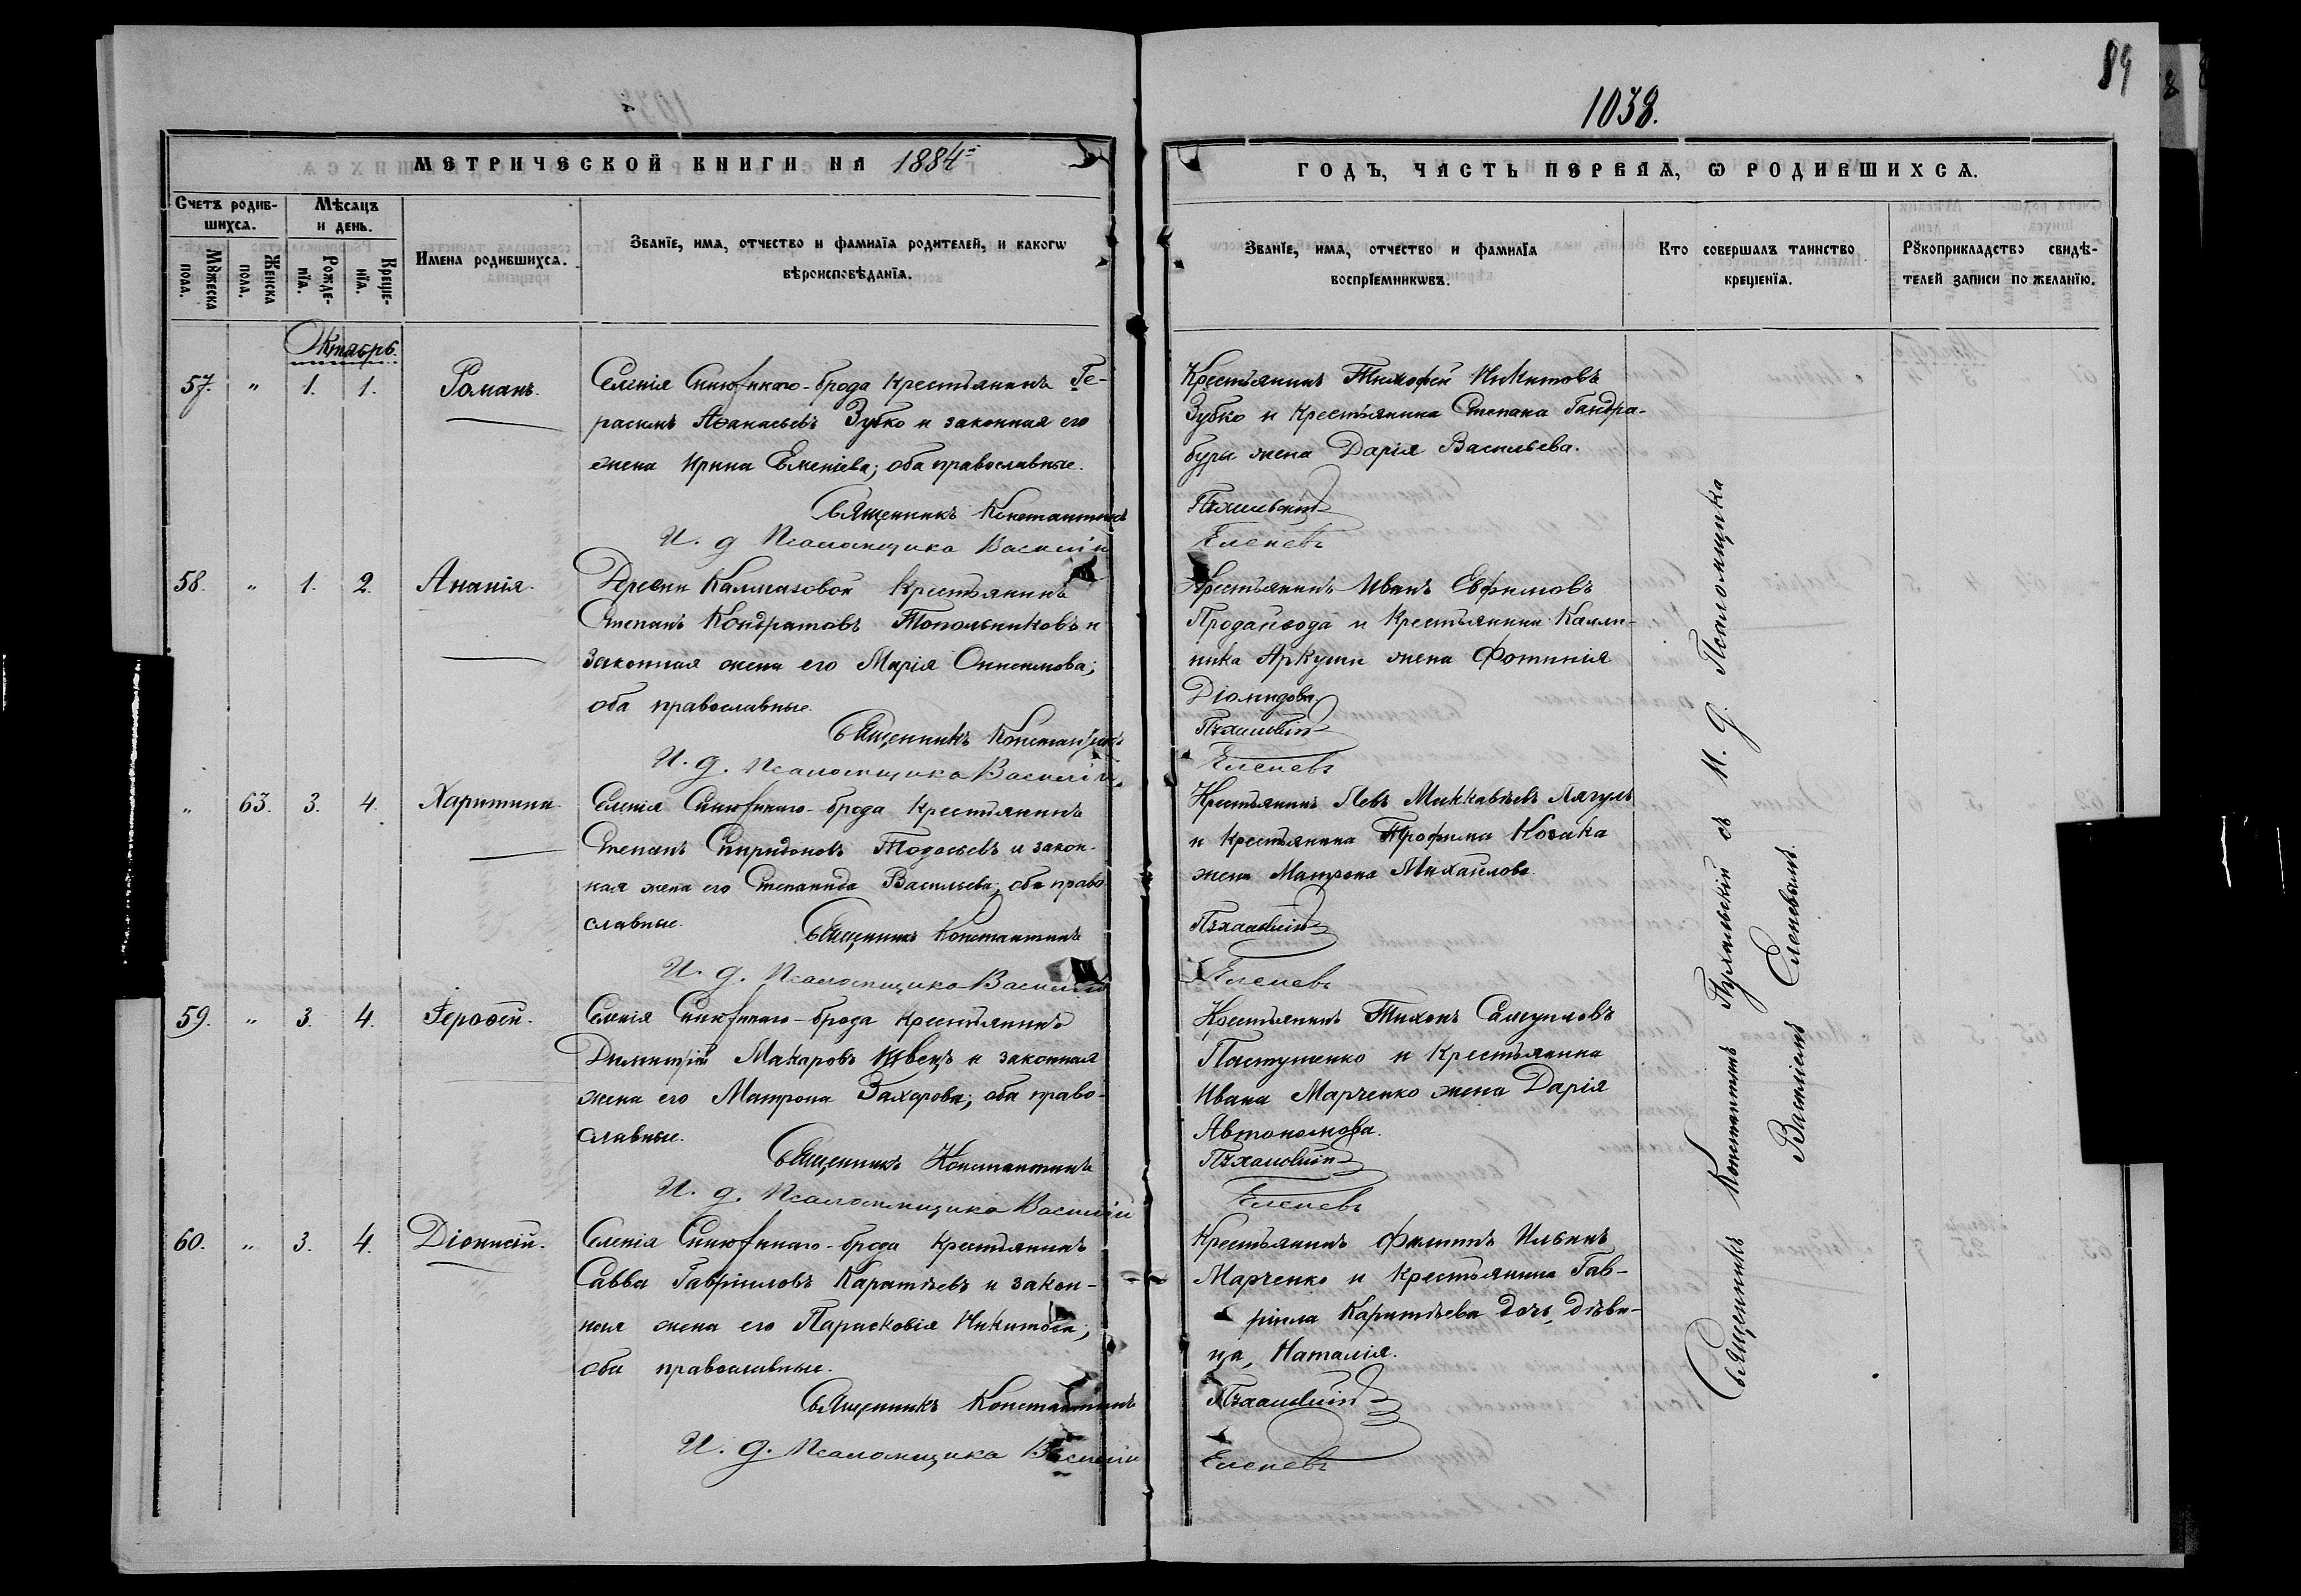 89
1038.
МЕТРИЧЕСКОЙ КНИГИ НА 1884
ГОДЪ, ЧАСТЬ ПЕРВАЯ, Ѡ РОДИВШИХСѦ.
Счетъ родив-
шихсѧ.
Мѣсѧцъ
и день.
Мꙋжеска
пола.
Женска
пола.
Рожде-
нїѧ.
Креще-
нїѧ.
Имена родившихсѧ.
Званїе, имѧ, отчество и фамилїѧ родителей, и какогѡ
вѣроисповѣданїѧ.
Званїе, имѧ, отчество и фамилїѧ
воспрїемникѡвъ.
Кто совершалъ таинство
крещенїѧ.
Рꙋкоприкладство свидѣ-
телей записи по желанїю.
Октябрь.
57. " 1. 1. Романъ.
Селенія Синюхинаго-брода крестьянинъ Ге-
расимъ Аѳанасьевъ Зубко и законная его
жена Ирина Евменіева; оба православные.
Священникъ Константинъ
И. д. Псаломщика Василій
Крестьянинъ Тимофей Никитовъ
Зубко и крестьянина Степана Гандра-
буры жена Дарія Васильева.
Пухальскій
Еленевъ
58. " 1. 2. Ананія.
Деревни Калмазовой крестьянинъ
Степанъ Кондратовъ Топольниковъ и
законная жена его Марія Онисимова;
оба православные.
Священникъ Константинъ
И. д. Псаломщика Василій
Крестьянинъ Иванъ Евфимовъ
Продайвода и крестьянина Калли-
ника Аркуши жена Фотинія
Діомидова
Пухальскій
Еленевъ
" 63. 3. 4. Харитина.
Селенія Синюхинаго-брода крестьянинъ
Степанъ Спиридоновъ Тодосьевъ и закон-
ная жена его Степанида Васильева; оба право
славные.
Священникъ Константинъ
И. д. Псаломщика Василій
Крестьянинъ Левъ Маккавѣевъ Лягулъ
и крестьянина Трофима Козака
жена Матрона Михайлова
Пухальскій
Еленевъ
59. " 3. 4. Іероѳей.
Селенія Синюхинаго-брода крестьянинъ
Димитрій Макаровъ Швецъ и законная
жена его Матрона Захарова; оба право-
славные.
Священникъ Константинъ
И. д. Псаломщика Василій
Крестьянинъ Тихонъ Самуиловъ
Пастушенко и крестьянина
Ивана Марченко жена Дарія
Автономова.
Пухальскій
Еленевъ
60. " 3. 4. Діонисій.
Селенія Синюхинаго-брода крестьянинъ
Савва Гавріиловъ Каратѣевъ и закон-
ная жена его Парасковія Никитова;
оба православные.
Священникъ Константинъ
И. д. Псаломщика Василій
Крестьянинъ Филиппъ Ильинъ
Марченко и крестьянина Гав-
ріила Каратѣева дочь, дѣви-
ца, Наталія.
Пухальскій
Еленевъ
Священникъ Константинъ Пухальскій съ И. д. Псаломщика
Василіемъ Еленевымъ.